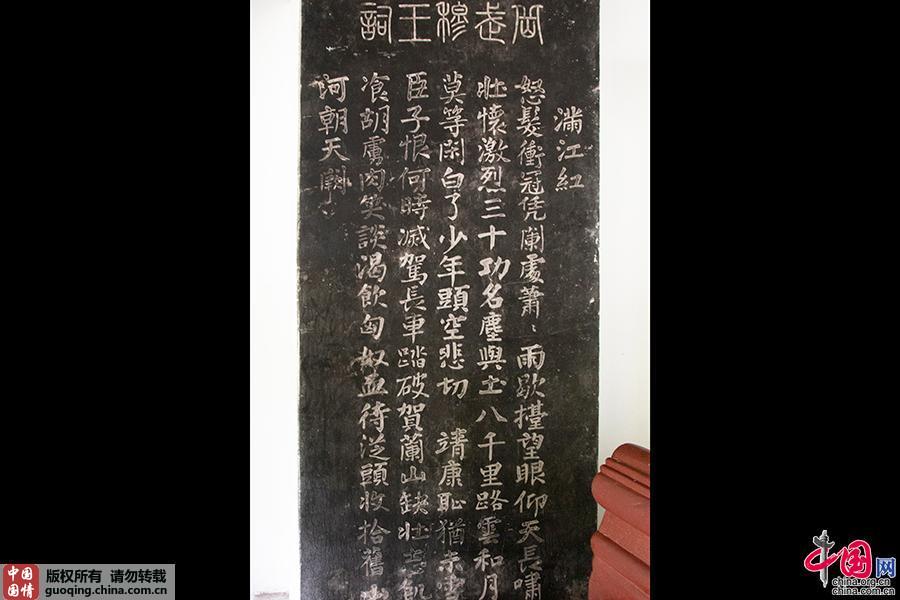 岳武穆王詞
滿江紅
怒髮衝冠凭闌處蕭〻雨歇擡望眼仰天長嘯
壯懷激烈三十功名塵與土八千里路雲和月
莫等閑白了少年頭空悲切 靖康恥猶未雪
臣子恨何時滅駕長車踏破賀蘭山缺壯志飢
飡胡虜肉笑談渴飲匈奴血待從頭收拾舊山
河朝天闕
中国国情
版权所有 请勿转载
guoqing.china.com.cn
中国网
china.org.cn
china.com.cn